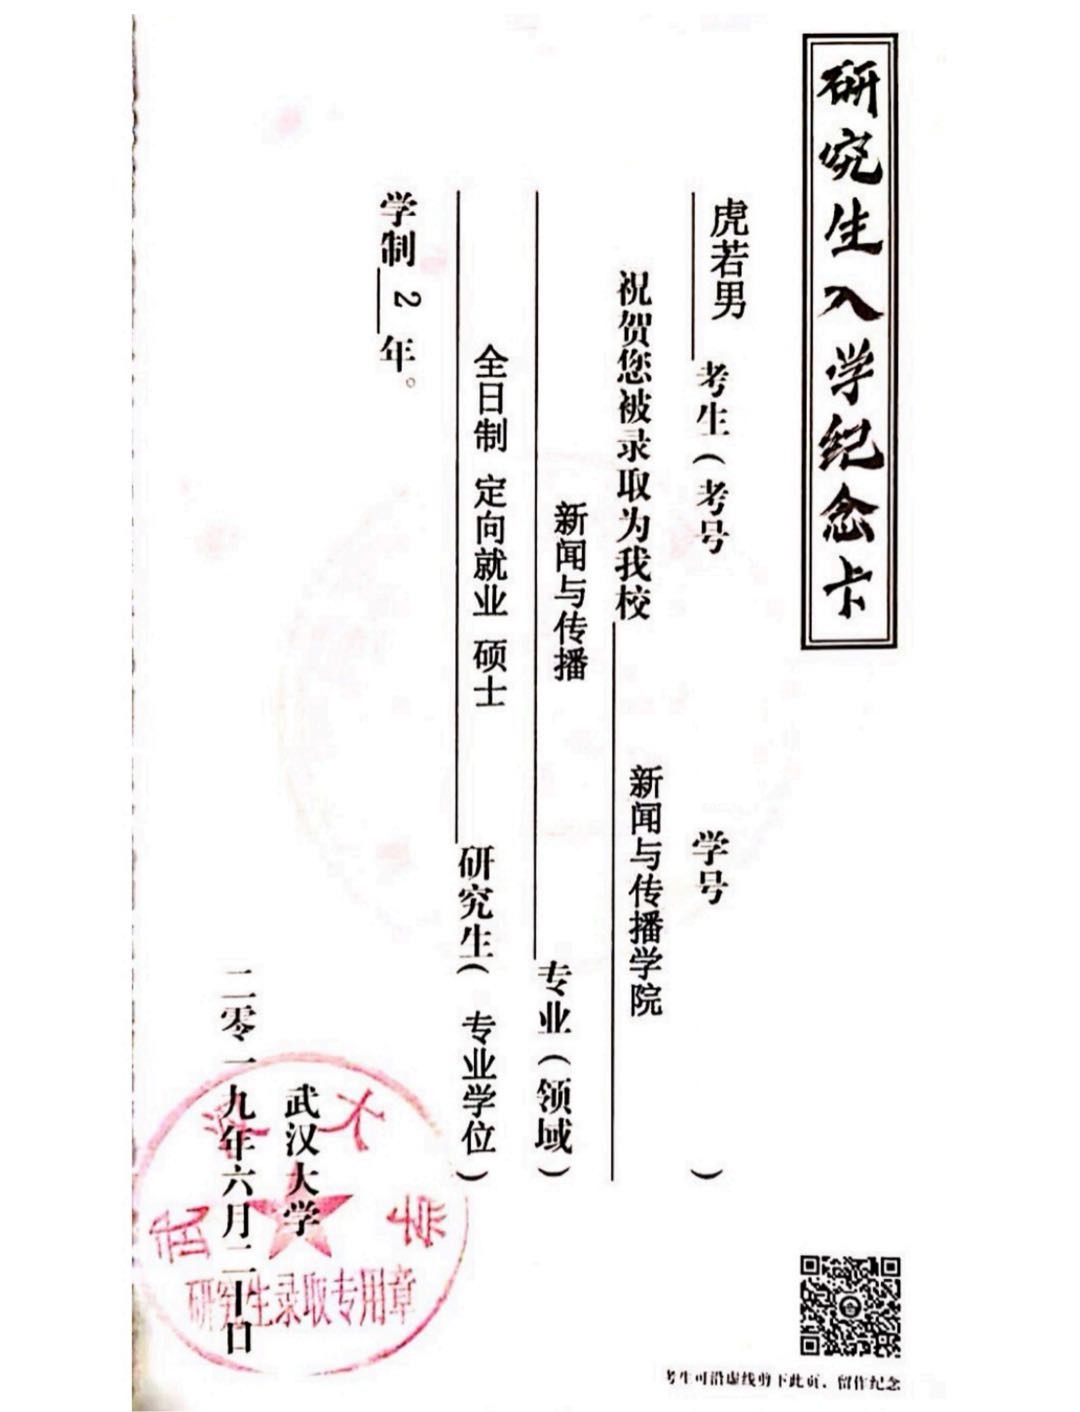 研究生入学纪念卡
虎若男 考生（考号 学号 ）
祝贺您被录取为我校 新闻与传播学院
新闻与传播 专业（领域）
全日制 定向就业 硕士 研究生（ 专业学位）
学制 2 年。
武汉大学
二零一九年六月二十日
武汉大学
研究生录取专用章
考生可沿虚线剪下此页，留作纪念